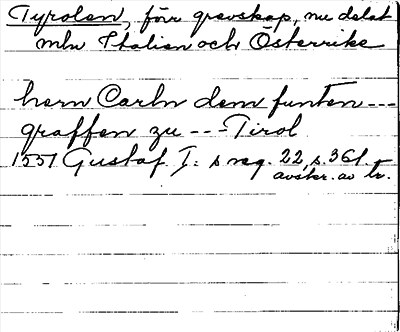 Tyrolen, förr grevskap, nu delat
mln Italien och Österrike
hern Carln dem funten ---
graffen zu --- Tirol
1551 Gustaf I: s reg. 22, s. 361.
avskr. av tr.